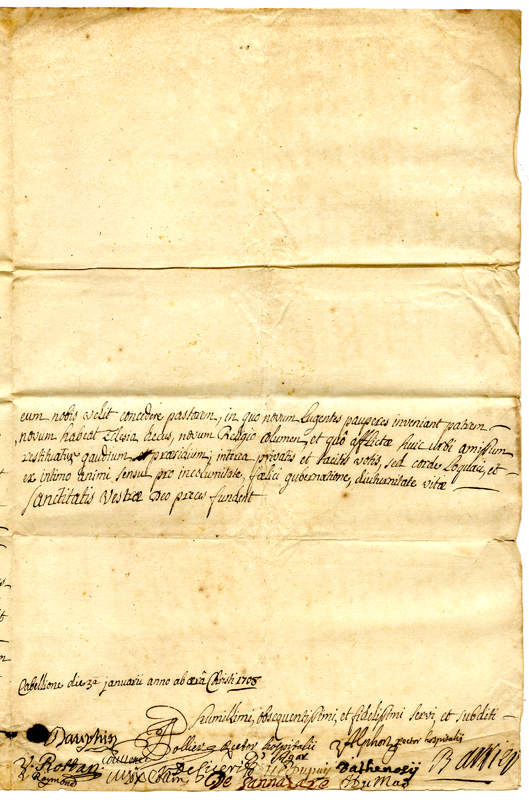 eum nobis velit concedere pastorem, in quo novum lugentes pauperes inveniant patrem
novum habeat Eclesia decus, novum Religio columen, et quo afflictæ huic urbi amissum
restituatur gaudium præsidium, interea privatis et tacitis votis, sed corde, et
ex intimo animi sensu pro incolumitate, fælici gubernatione, diuturnitate vitæ
sanctitatis Vestræ Deo preces fundent
Cabellione die 3ª januarii anno ab ærâ Christi 1708
humillimi, obsequentissimi, et fidelissimi servi, et subditi
Dauphin Tollier Rector hospitalii Rector hospitalis
V. Rottan
Reymond De Sannazaro Dumas